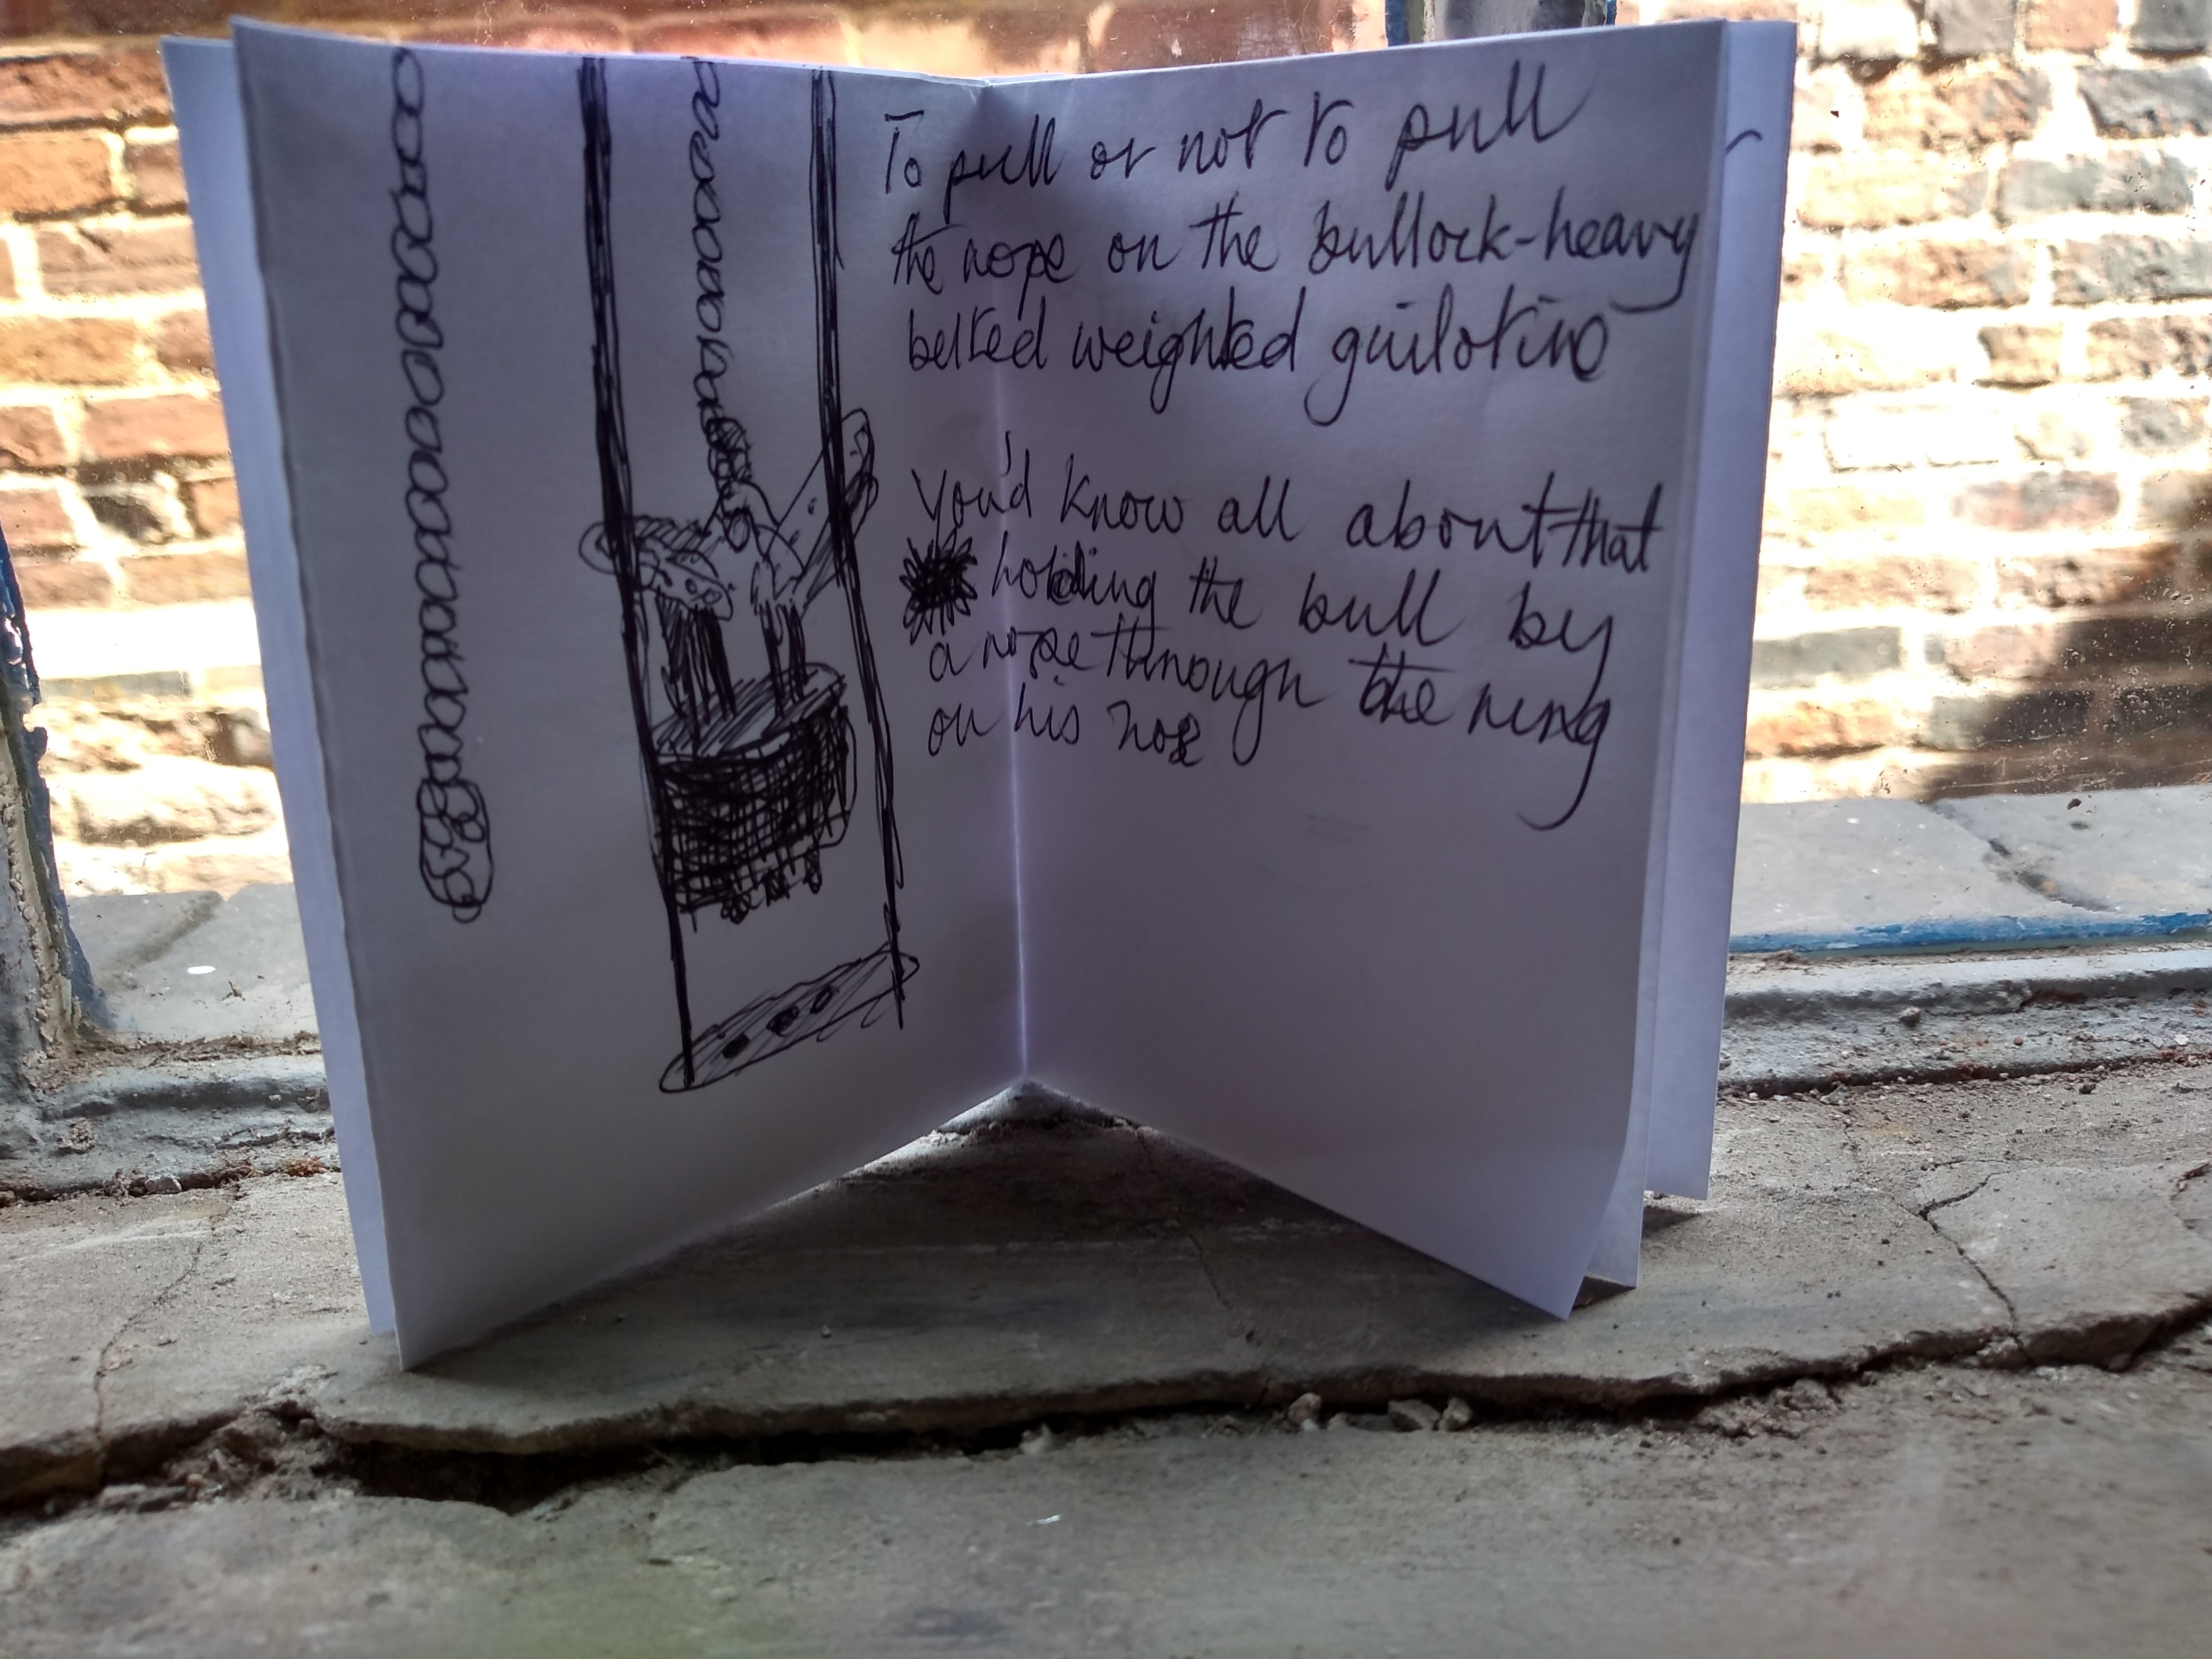 To pull or not to pull
the rope on the bullock-heavy
belted weighted guilotine
You'd know all about that
holding the bull by
a rope through the ring
on his nose